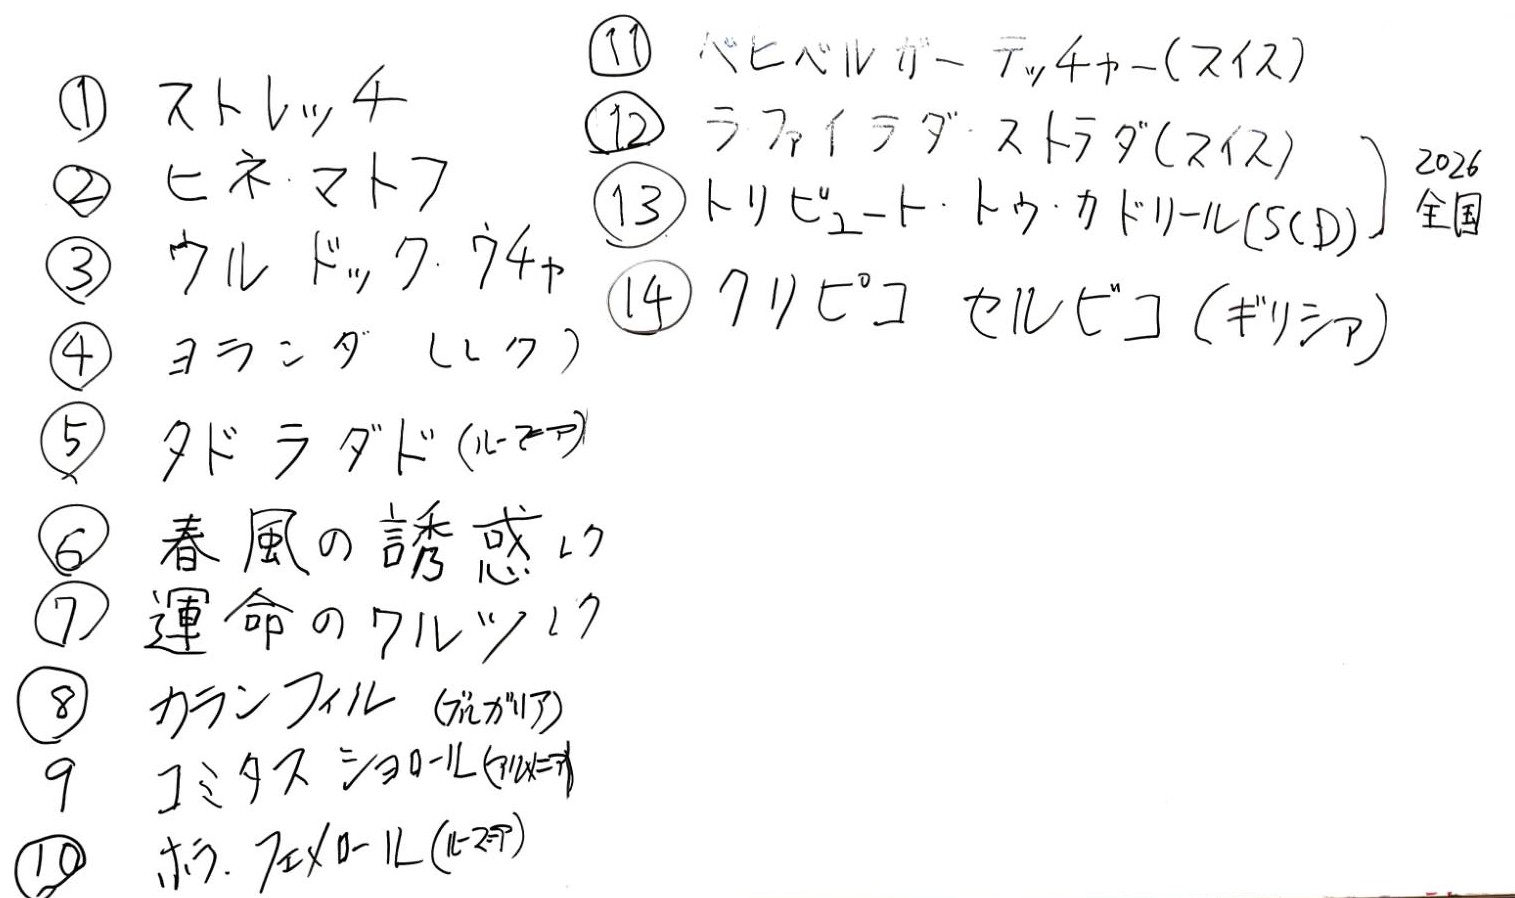 ① ストレッチ
② ヒネ・マトフ
③ ウルドック・ウチャ
④ ヨランダ (レク)
⑤ タドラダド (ルーマニア)
⑥ 春風の誘惑 レク
⑦ 運命のワルツ レク
⑧ カランフィル (ブルガリア)
9 コミタス ショロール (アルメニア)
⑩ ホラ・フェメロール (ルーマニア)
⑪ ベヒベルガーテッチャー (スイス)
⑫ ラ・ファイラダ・ストラダ (スイス)
⑬ トリビュート・トゥ・カドリール (SCD)
2026
全国
⑭ クリピコ セルビコ (ギリシア)